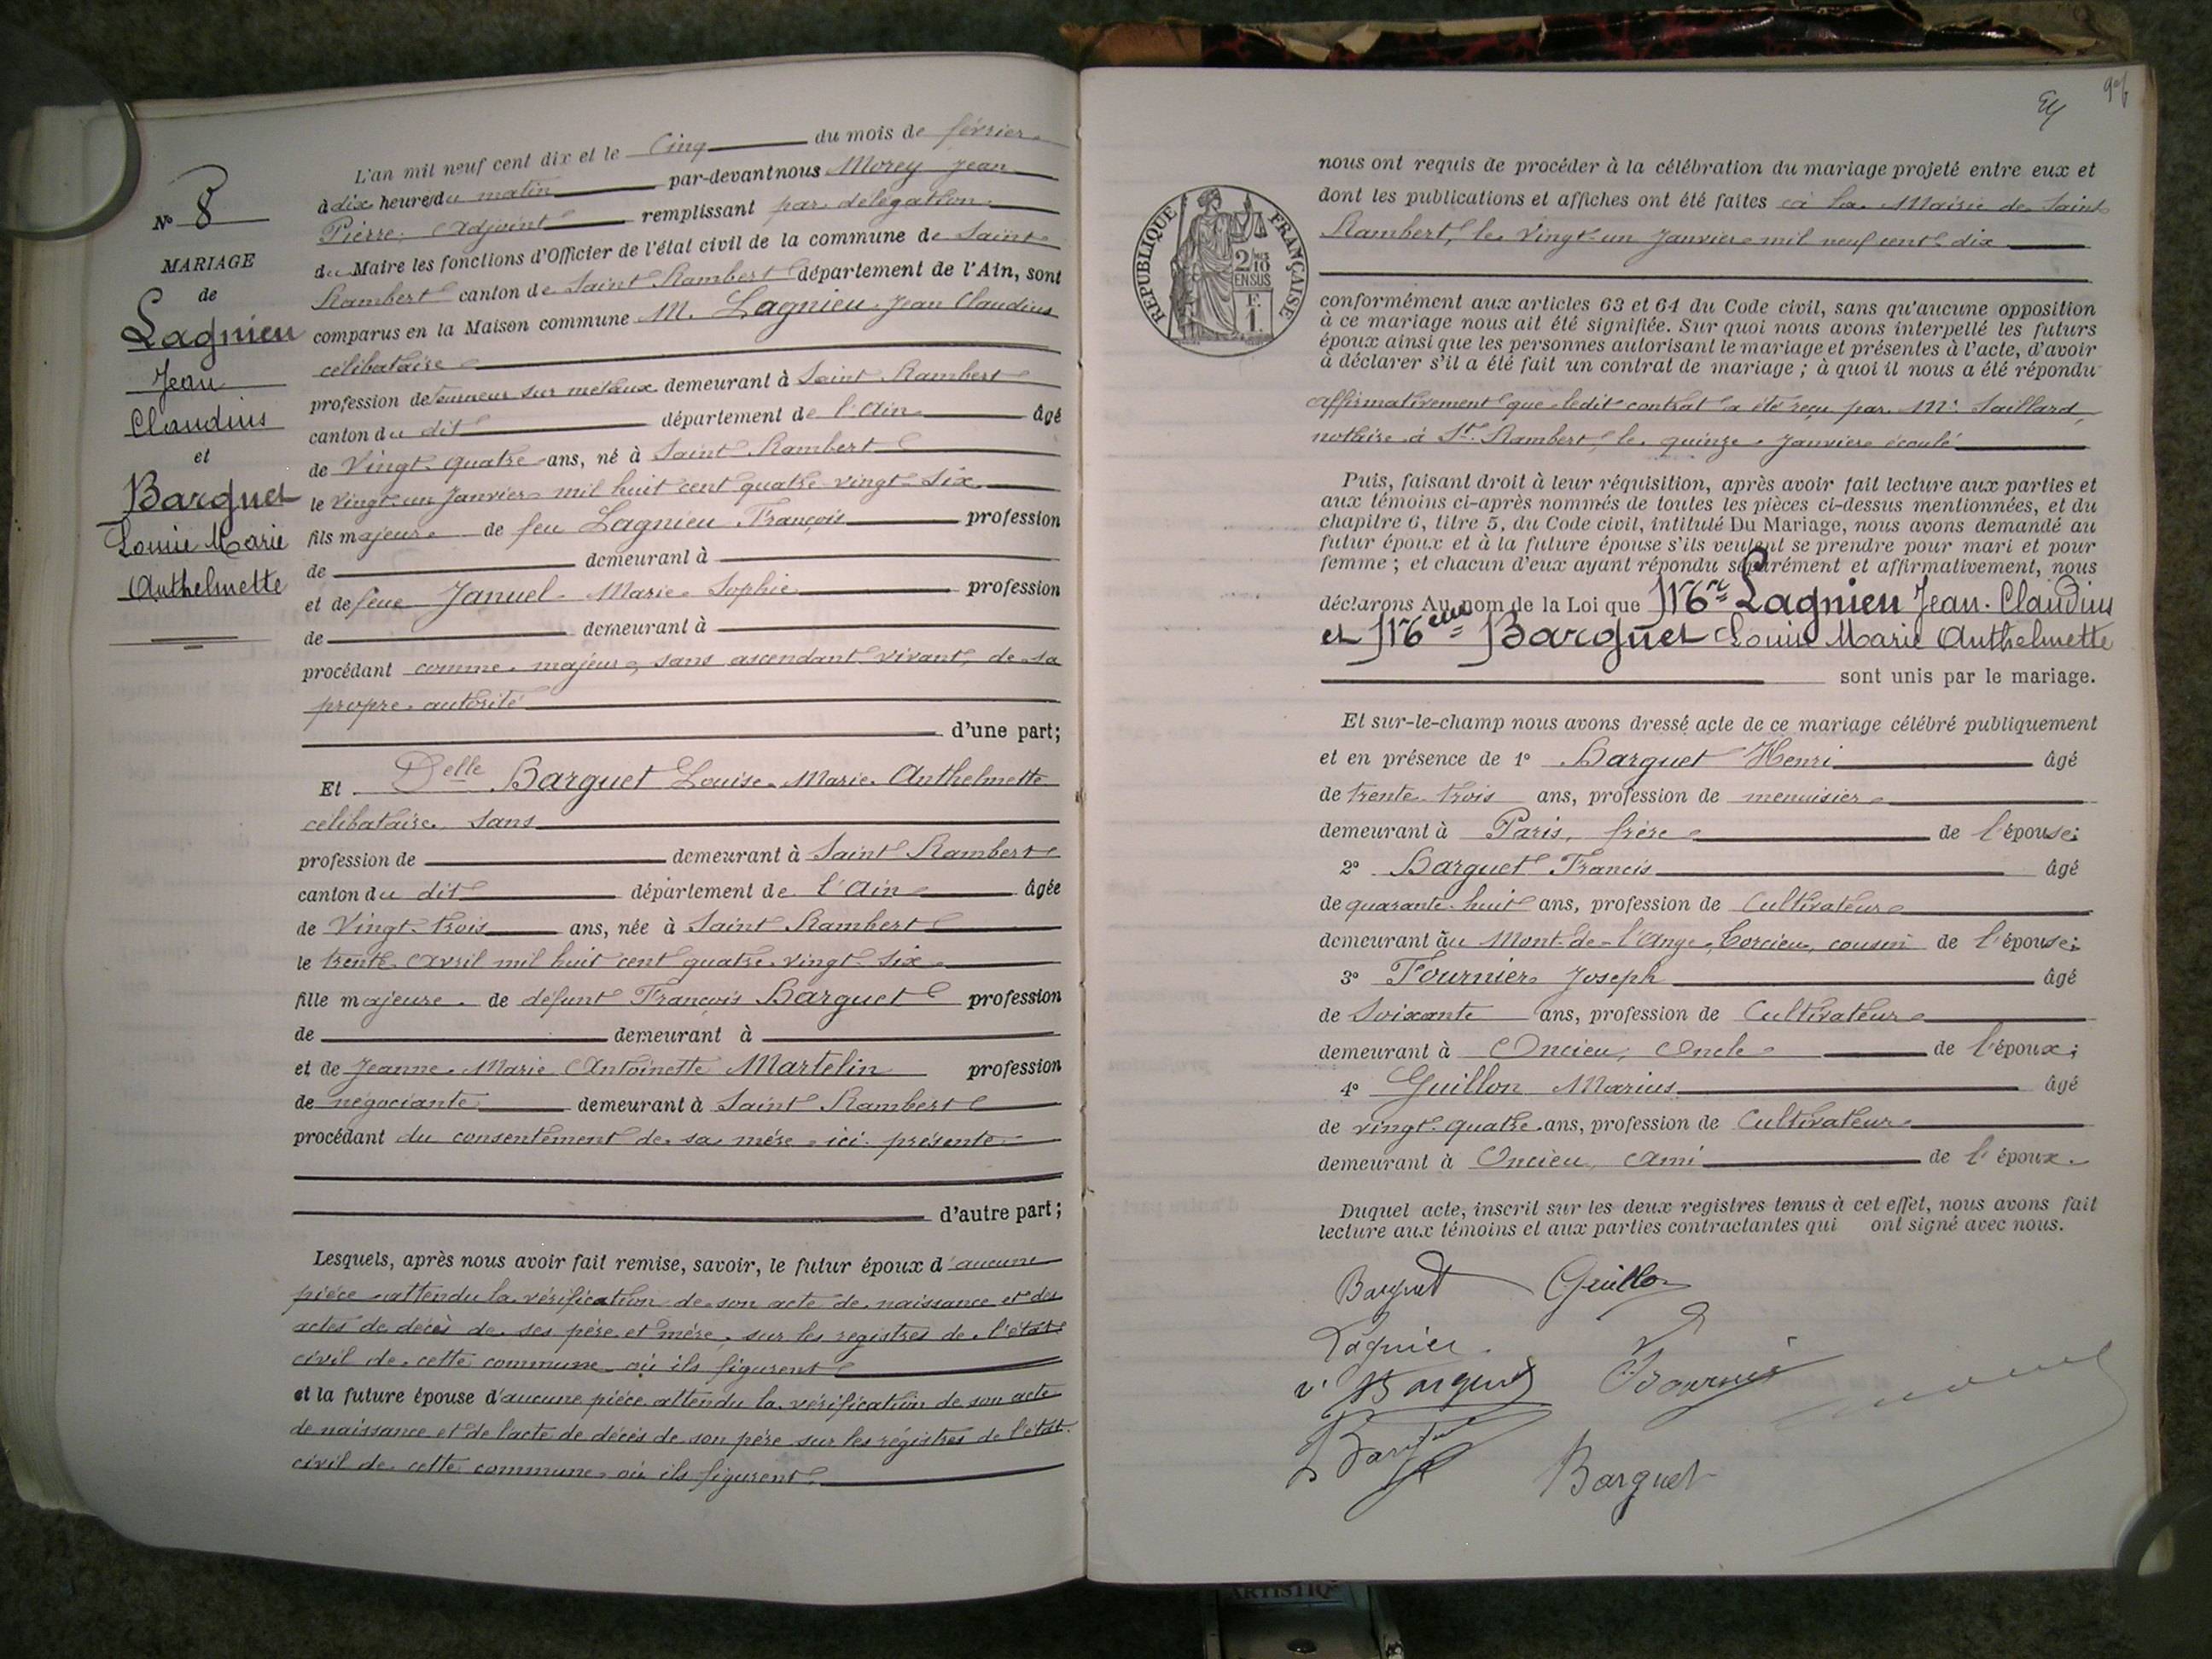 N° 8
MARIAGE
de
Lagnieu
Jean
Claudius
et
Barguet
Louise Marie
Anthelmette
L'an mil neuf cent dix et le Cinq du mois de février
à dix heures du matin par-devant nous Morey Jean
Pierre, Adjoint remplissant par délégation
du Maire les fonctions d'Officier de l'état civil de la commune de Saint
Rambert canton de Saint Rambert département de l'Ain, sont
comparus en la Maison commune M. Lagnieu Jean Claudius
célibataire
profession de tourneur sur métaux demeurant à Saint Rambert
canton du dit département de l'Ain âgé
de Vingt quatre ans, né à Saint Rambert
le vingt-un Janvier mil huit cent quatre vingt-six
fils majeur de feu Lagnieu François profession
de demeurant à
et de feue Januel Marie Sophie profession
de demeurant à
procédant comme majeur, sans ascendant vivant, de sa
propre autorité
d'une part;
Et Delle Barguet Louise Marie Anthelmette
célibataire, sans
profession de demeurant à Saint Rambert
canton du dit département de l'Ain âgée
de Vingt-trois ans, née à Saint Rambert
le trente Avril mil huit cent quatre vingt six
fille majeure de défunt François Barguet profession
de demeurant à
et de Jeanne Marie Antoinette Martelin profession
de négociante demeurant à Saint Rambert
procédant du consentement de sa mère ici présente
d'autre part;
Lesquels, après nous avoir fait remise, savoir, le futur époux d'aucune
pièce attendu la vérification de son acte de naissance et des
actes de décès de ses père et mère, sur les registres de l'état
civil de cette commune où ils figurent
et la future épouse d'aucune pièce attendu la vérification de son acte
de naissance et de l'acte de décès de son père sur les régistres de l'état
civil de cette commune où ils figurent.
RÉPUBLIQUE FRANÇAISE
2/10
EN SUS
F.
1.
nous ont requis de procéder à la célébration du mariage projeté entre eux et
dont les publications et affiches ont été faites à la Mairie de Saint
Rambert, le vingt-un Janvier mil neuf cent dix
conformément aux articles 63 et 64 du Code civil, sans qu'aucune opposition
à ce mariage nous ait été signifiée. Sur quoi nous avons interpellé les futurs
époux ainsi que les personnes autorisant le mariage et présentes à l'acte, d'avoir
à déclarer s'il a été fait un contrat de mariage ; à quoi il nous a été répondu
affirmativement que ledit contrat a été reçu par Me Saillard,
notaire à St. Rambert, le quinze Janvier écoulé
Puis, faisant droit à leur réquisition, après avoir fait lecture aux parties et
aux témoins ci-après nommés de toutes les pièces ci-dessus mentionnées, et du
chapitre 6, titre 5, du Code civil, intitulé Du Mariage, nous avons demandé au
futur époux et à la future épouse s'ils veulent se prendre pour mari et pour
femme ; et chacun d'eux ayant répondu séparément et affirmativement, nous
déclarons Au nom de la Loi que Mr Lagnieu Jean Claudius
et Melle Barguet Louise Marie Anthelmette
sont unis par le mariage.
Et sur-le-champ nous avons dressé acte de ce mariage célébré publiquement
et en présence de 1° Barguet Henri âgé
de trente trois ans, profession de menuisier
demeurant à Paris, frère de l'épouse;
2° Barguet Francis âgé
de quarante huit ans, profession de Cultivateur
demeurant au Mont-de-l'Ange, Torcieu, cousin de l'épouse;
3° Fournier Joseph âgé
de Soixante ans, profession de Cultivateur
demeurant à Oncieu, Oncle de l'époux;
4° Guillon Marius âgé
de vingt quatre ans, profession de Cultivateur
demeurant à Oncieu, Ami de l'époux.
Duquel acte, inscrit sur les deux registres tenus à cet effet, nous avons fait
lecture aux témoins et aux parties contractantes qui ont signé avec nous.
Barguet Guillon
Lagnieu
Barguet Fournier
Barguet
Barguet
ARTISTIQ